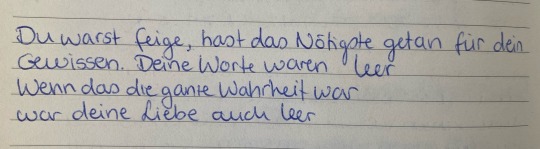 Du warst feige, hast das Nötigste getan für dein
Gewissen. Deine Worte waren leer
Wenn das die ganze Wahrheit war
war deine Liebe auch leer